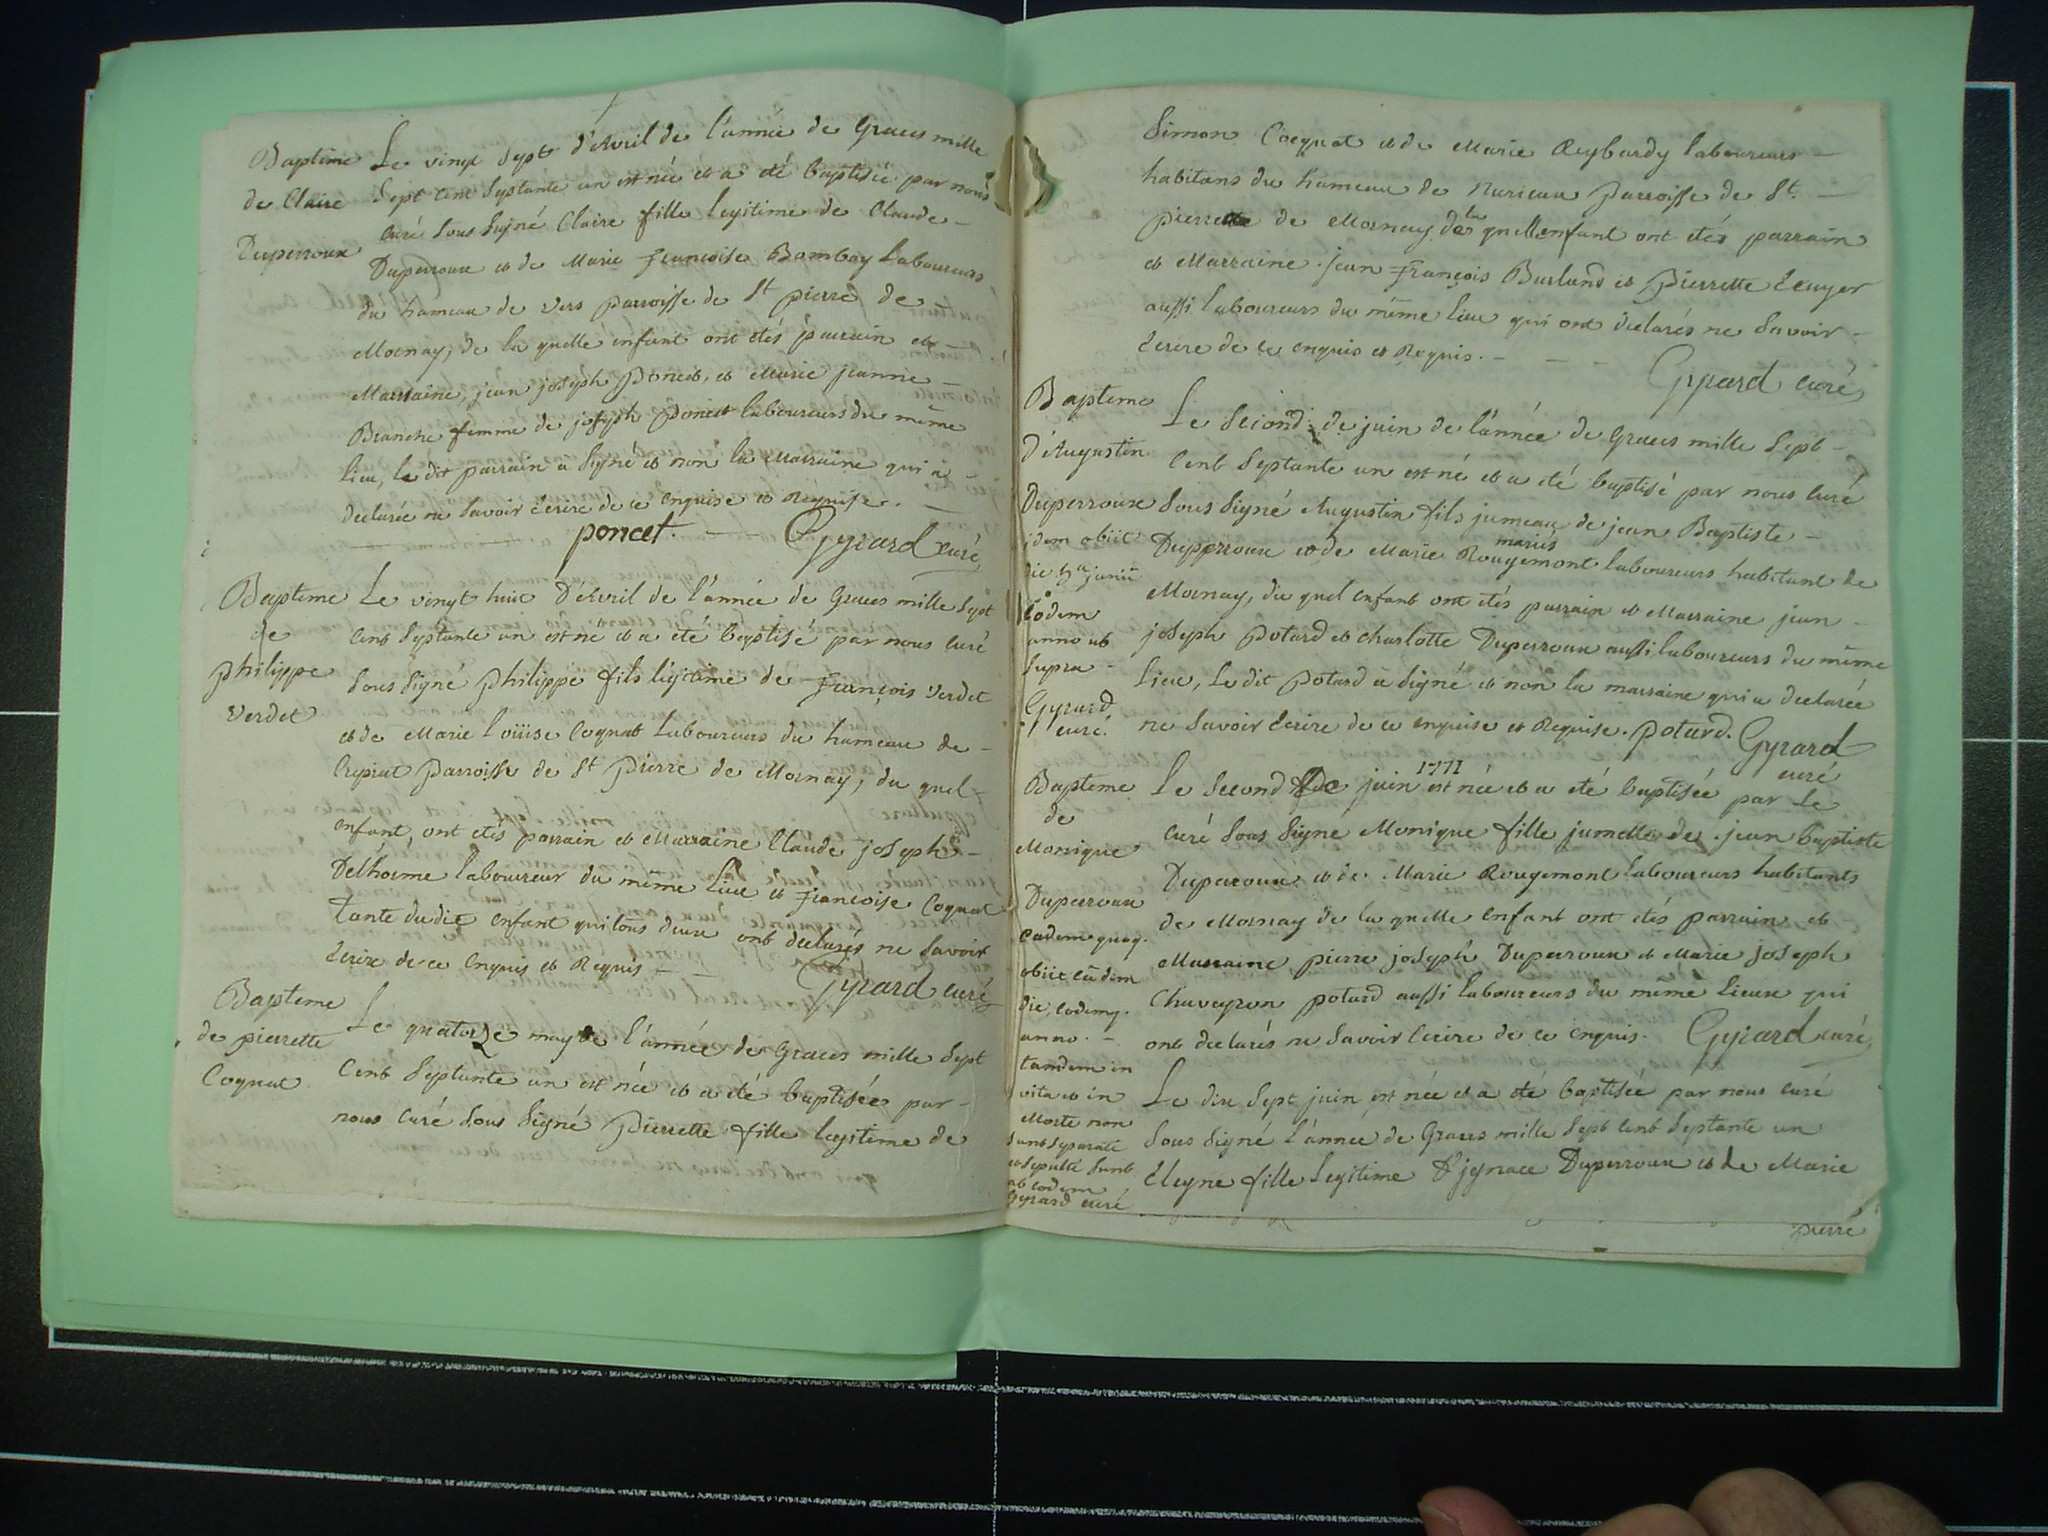 Baptême
de Claire
Duperroux
Le vingt sept d'Avril de l'année de Graces mille
Sept cent Septante un est née et a été baptisée par nous
Curé Sous Signé Claire fille legitime de Claude -
Duperroux et de Marie Françoise Bomboy Laboureurs
du hameau de Vers parroisse de St pierre de -
Mornay, de la quelle enfant ont étés parrain et -
Marraine, jean joseph Poncet, et Marie jeanne -
Branche femme de joseph Poncet laboureurs du même
lieu, le dit parrain a Signé et non la Marraine qui a -
declarée ne Savoir Ecrire de ce enquise et Requise. -
poncet. - Gyrard curé
Baptême
de
philippe
Verdet
Le vingt huit D'Avril de l'année de Graces mille Sept
Cent Septante un est né et a été baptisé par nous curé
Sous Signé philippe fils légitime de François Verdet
et de Marie Loüise Cognat Laboureurs du hameau de -
Crepiat Parroisse de St Pierre de Mornay, du quel -
enfant, ont étés parrain et Marraine Claude joseph -
Delhorme laboureur du même Lieu et Françoise Cognat
Tante du dit enfant qui tous deux ont declarés ne Savoir
Ecrire de ce Enquis et Requis - -
Gyrard curé
Bapteme
de pierrette
Cognat
Le quatorze may de l'année de Graces mille Sept
Cent Septante un est née et a été baptisée par -
nous curé Sous Signé Pierrette fille legitime de
Simon Cocgnat et de Marie Reybardy laboureurs -
habitans du hameau de Nurieux Parroisse de St. -
pierre de Mornay de la quelle enfant ont étés parrain
et Marraine jean François Burland et Pierrette Ecuyer
aussi laboureurs du même lieu qui ont declarés ne Savoir -
Ecrire de ce enquis et Requis. - - -
Gyrard curé
Bapteme
d'Augustin
Duperroux
idem obiit
die 4a junii
Eodem
anno ut
Supra -
Gyrard
curé.
Le Second de juin de l'année de Graces mille Sept -
Cent Septante un est né et a été baptisé par nous Curé
Sous Signé Augustin fils jumeau de jean Baptiste -
mariés
Dupperroux et de Marie Rougemont laboureurs habitant de
Mornay, du quel enfant ont étés parrain et Marraine jean -
joseph Potard et charlotte Duperroux aussi laboureurs du même
Lieu, Le dit Potard a Signé et non la marraine qui a declarée
ne Savoir Ecrire de ce enquise et Requise. Potard. Gyrard
curé
Bapteme
de
Monique
Duperroux
Eadem quoq.
obiit eâdem
die, eodemq.
anno. -
tandem in
vita et in
Morte non
Sunt Separati
et Sepulti Sunt
ab eodem
Gyrard curé
1771
Le Second De juin est née et a été baptisée par Le
Curé Sous Signé Monique fille jumelle de jean baptiste
Duperroux et de Marie Rougemont laboureurs habitants
de Mornay de la quelle enfant ont étés parrain et
Marraine pierre joseph Duperroux et Marie joseph
Chaveyron potard aussi laboureurs du même Lieux qui
ont declarés ne Savoir Ecrire de ce enquis. Gyrard curé
Le dix Sept juin est née et a été baptisée par nous curé
Sous Signé l'année de Graces mille Sept Cent Septante un
Eleyne fille Legitime D'jgnace Duperroux et de Marie
pierre